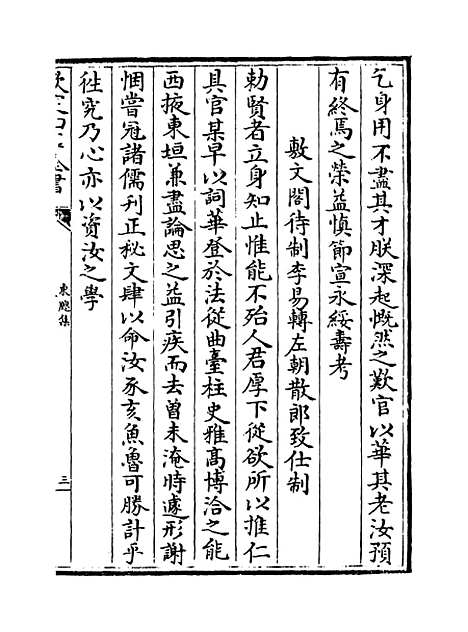 乞身用不盡其才朕深起慨然之歎官以華其老汝預
有終焉之榮益慎節宣永綏壽考
敷文閣待制李易轉左朝散郎致仕制
勅賢者立身知止惟能不殆人君厚下從欲所以推仁
具官某早以詞華登於法從曲臺柱史雅髙博洽之能
西掖東垣兼盡論思之益引疾而去曽未淹時遽形謝
悃嘗冠諸儒刋正秘文肆以命汝豕亥魚魯可勝計乎
徃究乃心亦以資汝之學
欽定四庫全書
東牕集
三